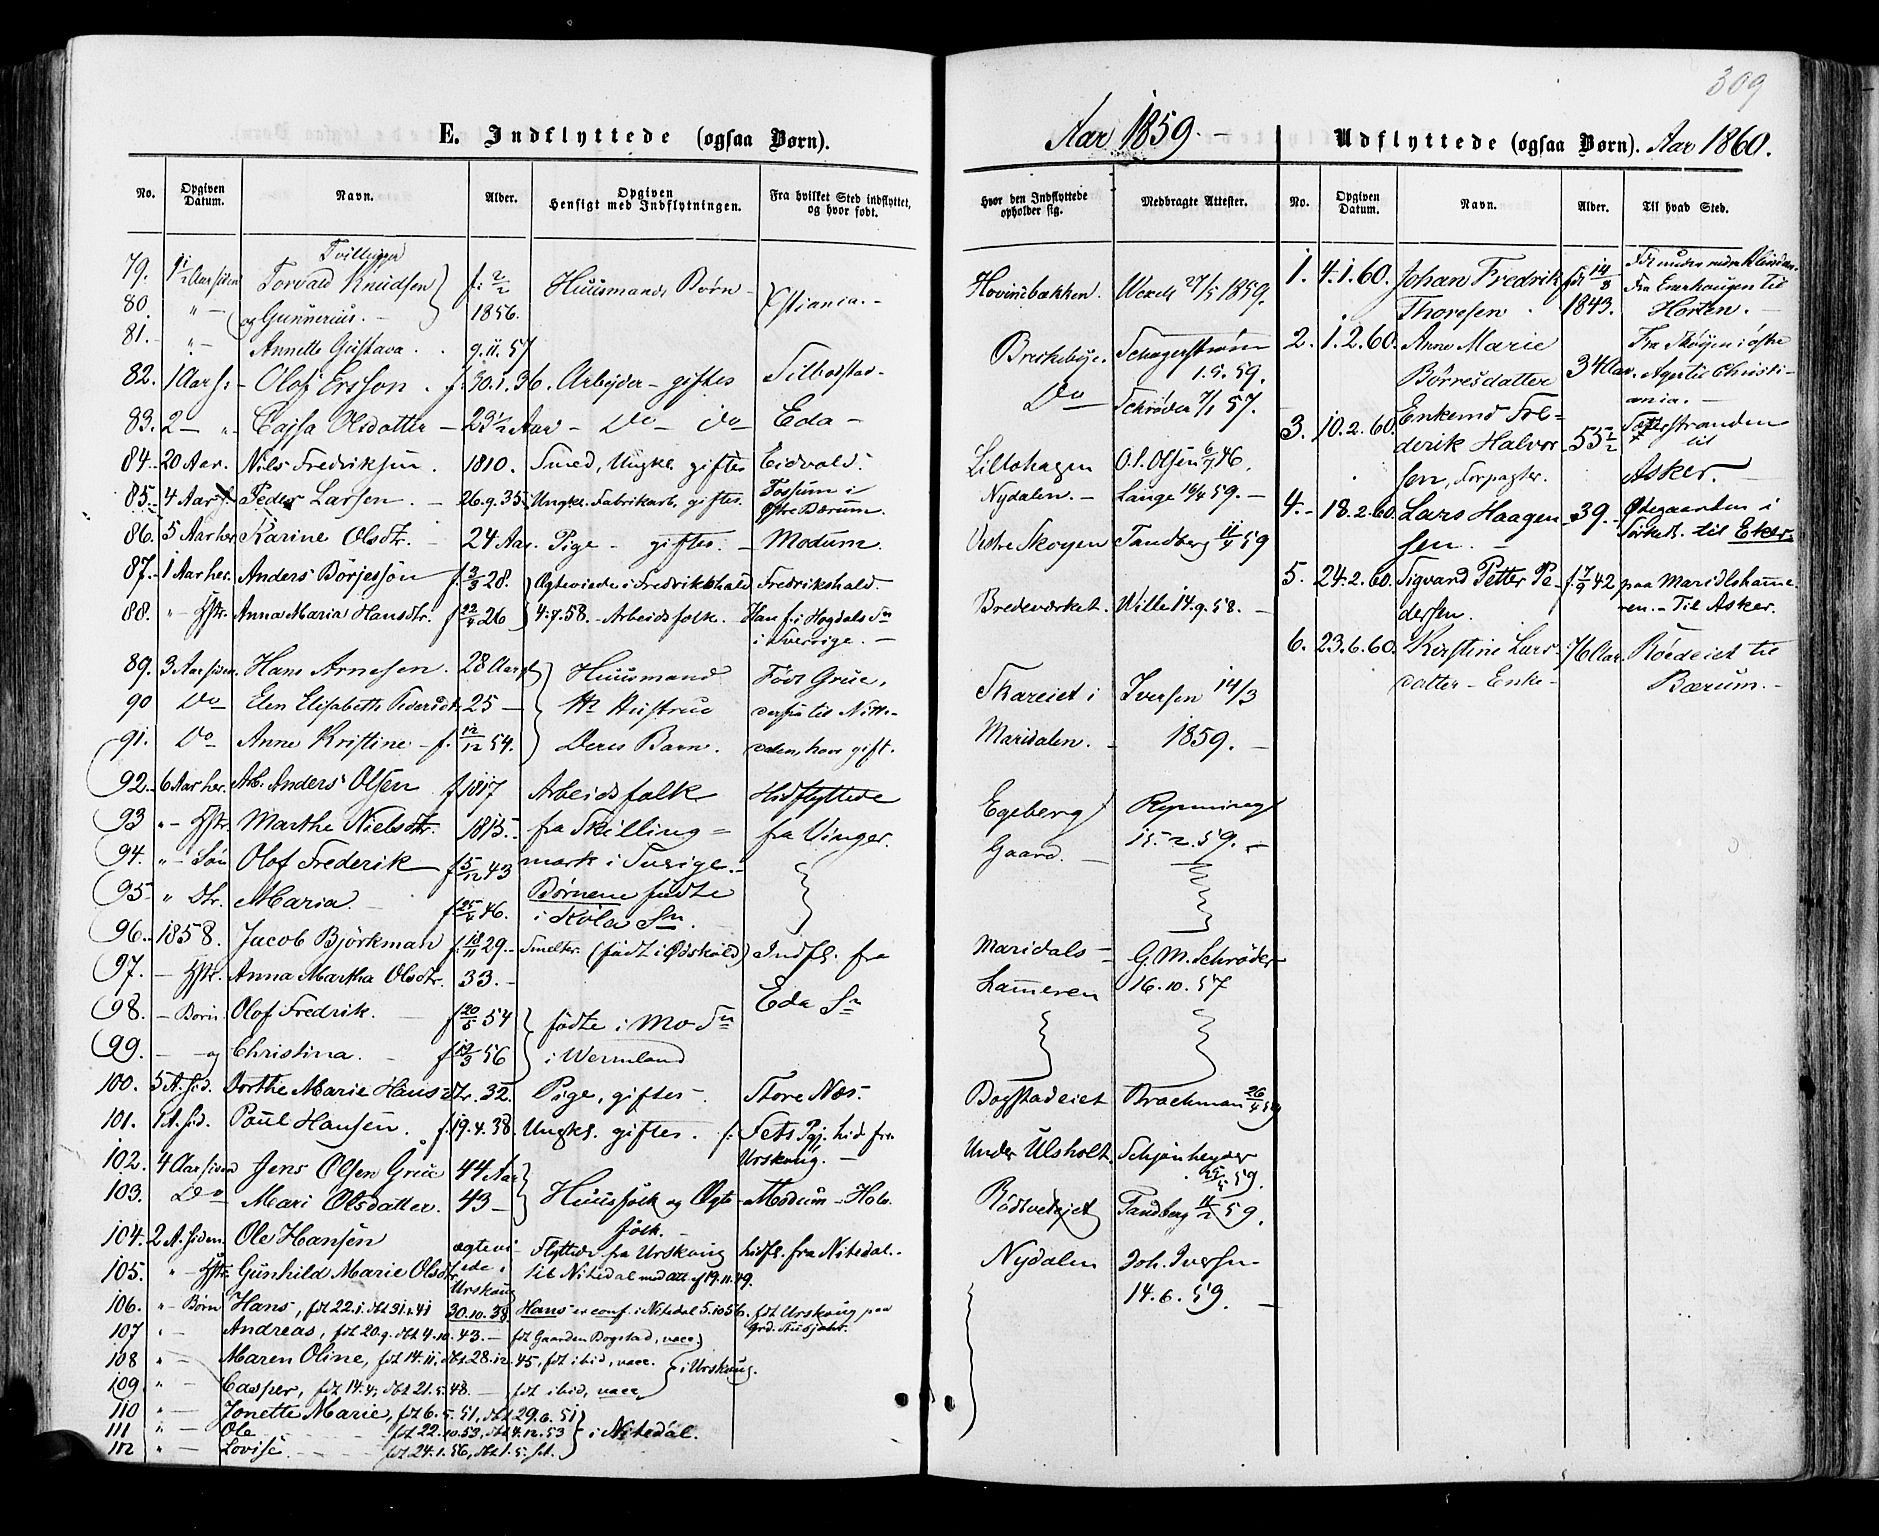 309
E. Indflyttede (ogsaa Børn).
Aar 1859.
No. Opgiven Datum. Navn. Alder. Opgiven Hensigt med Indflytningen. Fra hvilket Sted indflyttet, og hvor født. Hvor den Indflyttede opholder sig. Medbragte Attester.
79. 9 1/2 Aar siden Tvillinger Torvald Knudsen f. 2/2 Huusmands Børn Xstiania. Hovinsbækken. Wexels 27/5 1859.
80. " — og Gunnerius. 1856.
81. " — Annette Gustava. 9.11.57
82. 1 Aar s: Olof Ersson. f. 30.1.36. Arbejder — giftes Silbodstad Briskebye. Schagerstrøm 1.5.59.
83. 2 — " Cajsa Olsdatter 23 1/2 Aar — Do — Do Eda — Do Schrøder 7/1 57.
84. 20 Aar. Nils Fredriksen. 1810. Smed, Ungk. giftes Eidvold. Lillohagen O.S. Olsen 6/7 46.
85. 4 Aar s. Peder Larsen. 26.9.35. Ungk. Fabrikarb. giftes. Fossum i Østre Bærum. Nydalen. Lange 16/4 59.
86. 5 Aar her. Karine Olsdtr. 24 Aar. Pige — giftes. Modum. Vestre Skøyen Tandberg 11/4 59
87. 1 Aar her. Anders Börjesson f. 3/3 28. Ægteviede i Fredrikshald Fredrikshald.
88. " — Hstr. Anna Maria Hansdtr. f 22/4 26 4.7.58. — Arbeidsfolk. Han f. i Hogdals Sn i Sverrige. Bredeværket. Wille 14.9.58.
89. 3 Aar siden. Hans Arnesen. 28 Aar Huusmand Født Grue, Skareiet i Iversen 14/3
90 Do Elen Elisabeth Pedersdt. 25 — Hustrue derfra til Nitte- Maridalen. 1859.
91. Do Anne Kristine f. 12/12 54. Deres Barn. dalen, hvor gift.
92. 6 Aar her. Arb. Anders Olsen f 1817 Arbeidsfolk Hidflyttede Egeberg Rynning
93 " — Hstr. Marthe Nielsdtr. 1815. fra Skilling= fra Vinger. Gaard. 15.2.59.
94. " — Søn Olof Frederik f 5/12 43 mark i Sverige.
95 " Dtr. Maria. f 25/4 46. Børnene fødte i Köla Sn.
96. 1858. Jacob Björkman f. 18/11 29. Smelter. (født i Ödskøld) Indfl. fra Maridals- G.M. Schrøder
97. — Hstr. Anna Martha Olsdtr. 33. Eda Sn Hammeren 16.10.57
98. — Børn Olof Fredrik. f 20/5 54 fødte i Mo Sn
99. — og Christina. f 19/3 56 i Wermland
100. 5 A. sid. Dorthe Marie Hansdtr. 32. Pige, giftes. Store Næs. Bogstadeiet Brackman 26/4 59
101. 1 A. sid. Paul Hansen. f. 19.4.38. Ungk. giftes. f. Fets Pgj. hid fra Urskoug. Under Ulsholt. Schjønheyder 25/5 59.
102. 4 Aar siden Jens Olsen Grue 44 Aar
103. Do Mari Olsdatter. 43 — Huusfolk og Ægte- folk. Modum — Hol. Rødtvedtejet Tandberg 14/2 59.
104. 2 A. siden. Ole Hansen ægtevi- Flyttede fra Urskoug hidfl. fra Nitedal. Nydalen Joh. Iversen
105. " — Hstr. Gunhild Marie Olsdtr. ede i Urskoug til Nitedal med Att. af 19.11.49. 14.6.59.
106. " — Børn Hans, fdt 22.1. dbt 31.1.41 30.10.38. Hans er conf. i Nitedal 5.10 56. fdt Urskoug paa Grd.
107 " — Andreas, fdt 20.9. dbt 4.10.43. — fdt Gaarden Bogstad, vacc.
108 " — Maren Oline, fdt 14.11, dbt. 28.12.45, fdt ibid, vacc. i Urskoug.
109 " — Casper, fdt 14.4, dbt 21.5.48. — fdt ibid, vacc
110 " — Jonette Marie, fdt 6.5.51, dbt 29.6.51
111 " — Ole fdt 22.10.53, dbt 4.12.53 i Nitedal.
112 " — Lovise fdt 24.1.56, dbt 1.5. s.A.
Udflyttede (ogsaa Børn). Aar 1860.
No. Opgiven Datum. Navn. Alder. Til hvad Sted.
1. 4.1.60. Johan Fredrik fdt 14/8 Fra Enerhaugen til
Thoresen 1843. Horten.
2. 1.2.60. Anne Marie Fra Skøyen i østre
Børresdatter 34 Aar. Ager til Christi-
ania.
3. 10.2.60. Enkemd Fre-
derik Halvor- 55 1/2 til
sen, Forpagter. Asker.
4. 18.2.60 Lars Haagen- 39. Ødegaarden i
sen. Sørkeds. til Eker.
5. 24.2.60. Sigvard Petter Pe- f. 7/9 42 paa Maridlshamme-
dersen. ren. — Til Asker.
6. 23.6.60. Kirstine Lars- 76 Aar. Røideiet til
datter — Enke — Bærum.